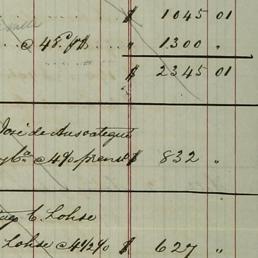 $ 1045 01
@ 48 c/ps. " 1300 "
$ 2345 01
José de Ansoategui
y Ca. @ 4% premo $ 832 "
C. Lohse
Lohse @ 4 1/2% $ 627 "